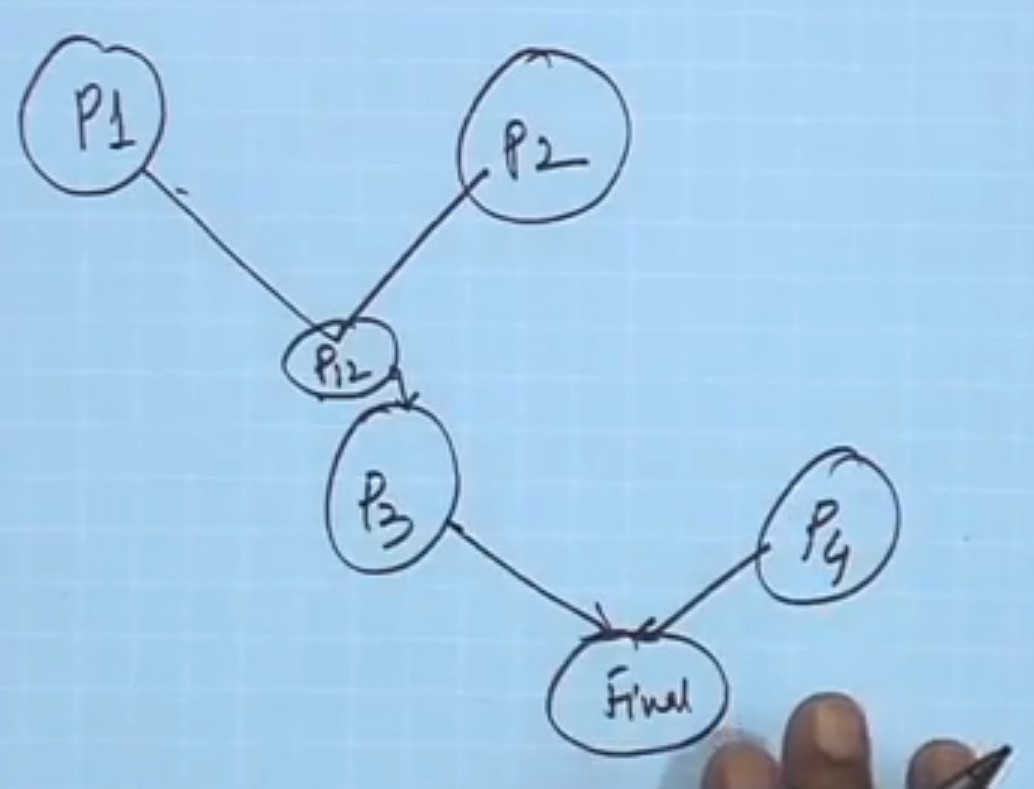 P1
P2
P12
P3
P4
Final